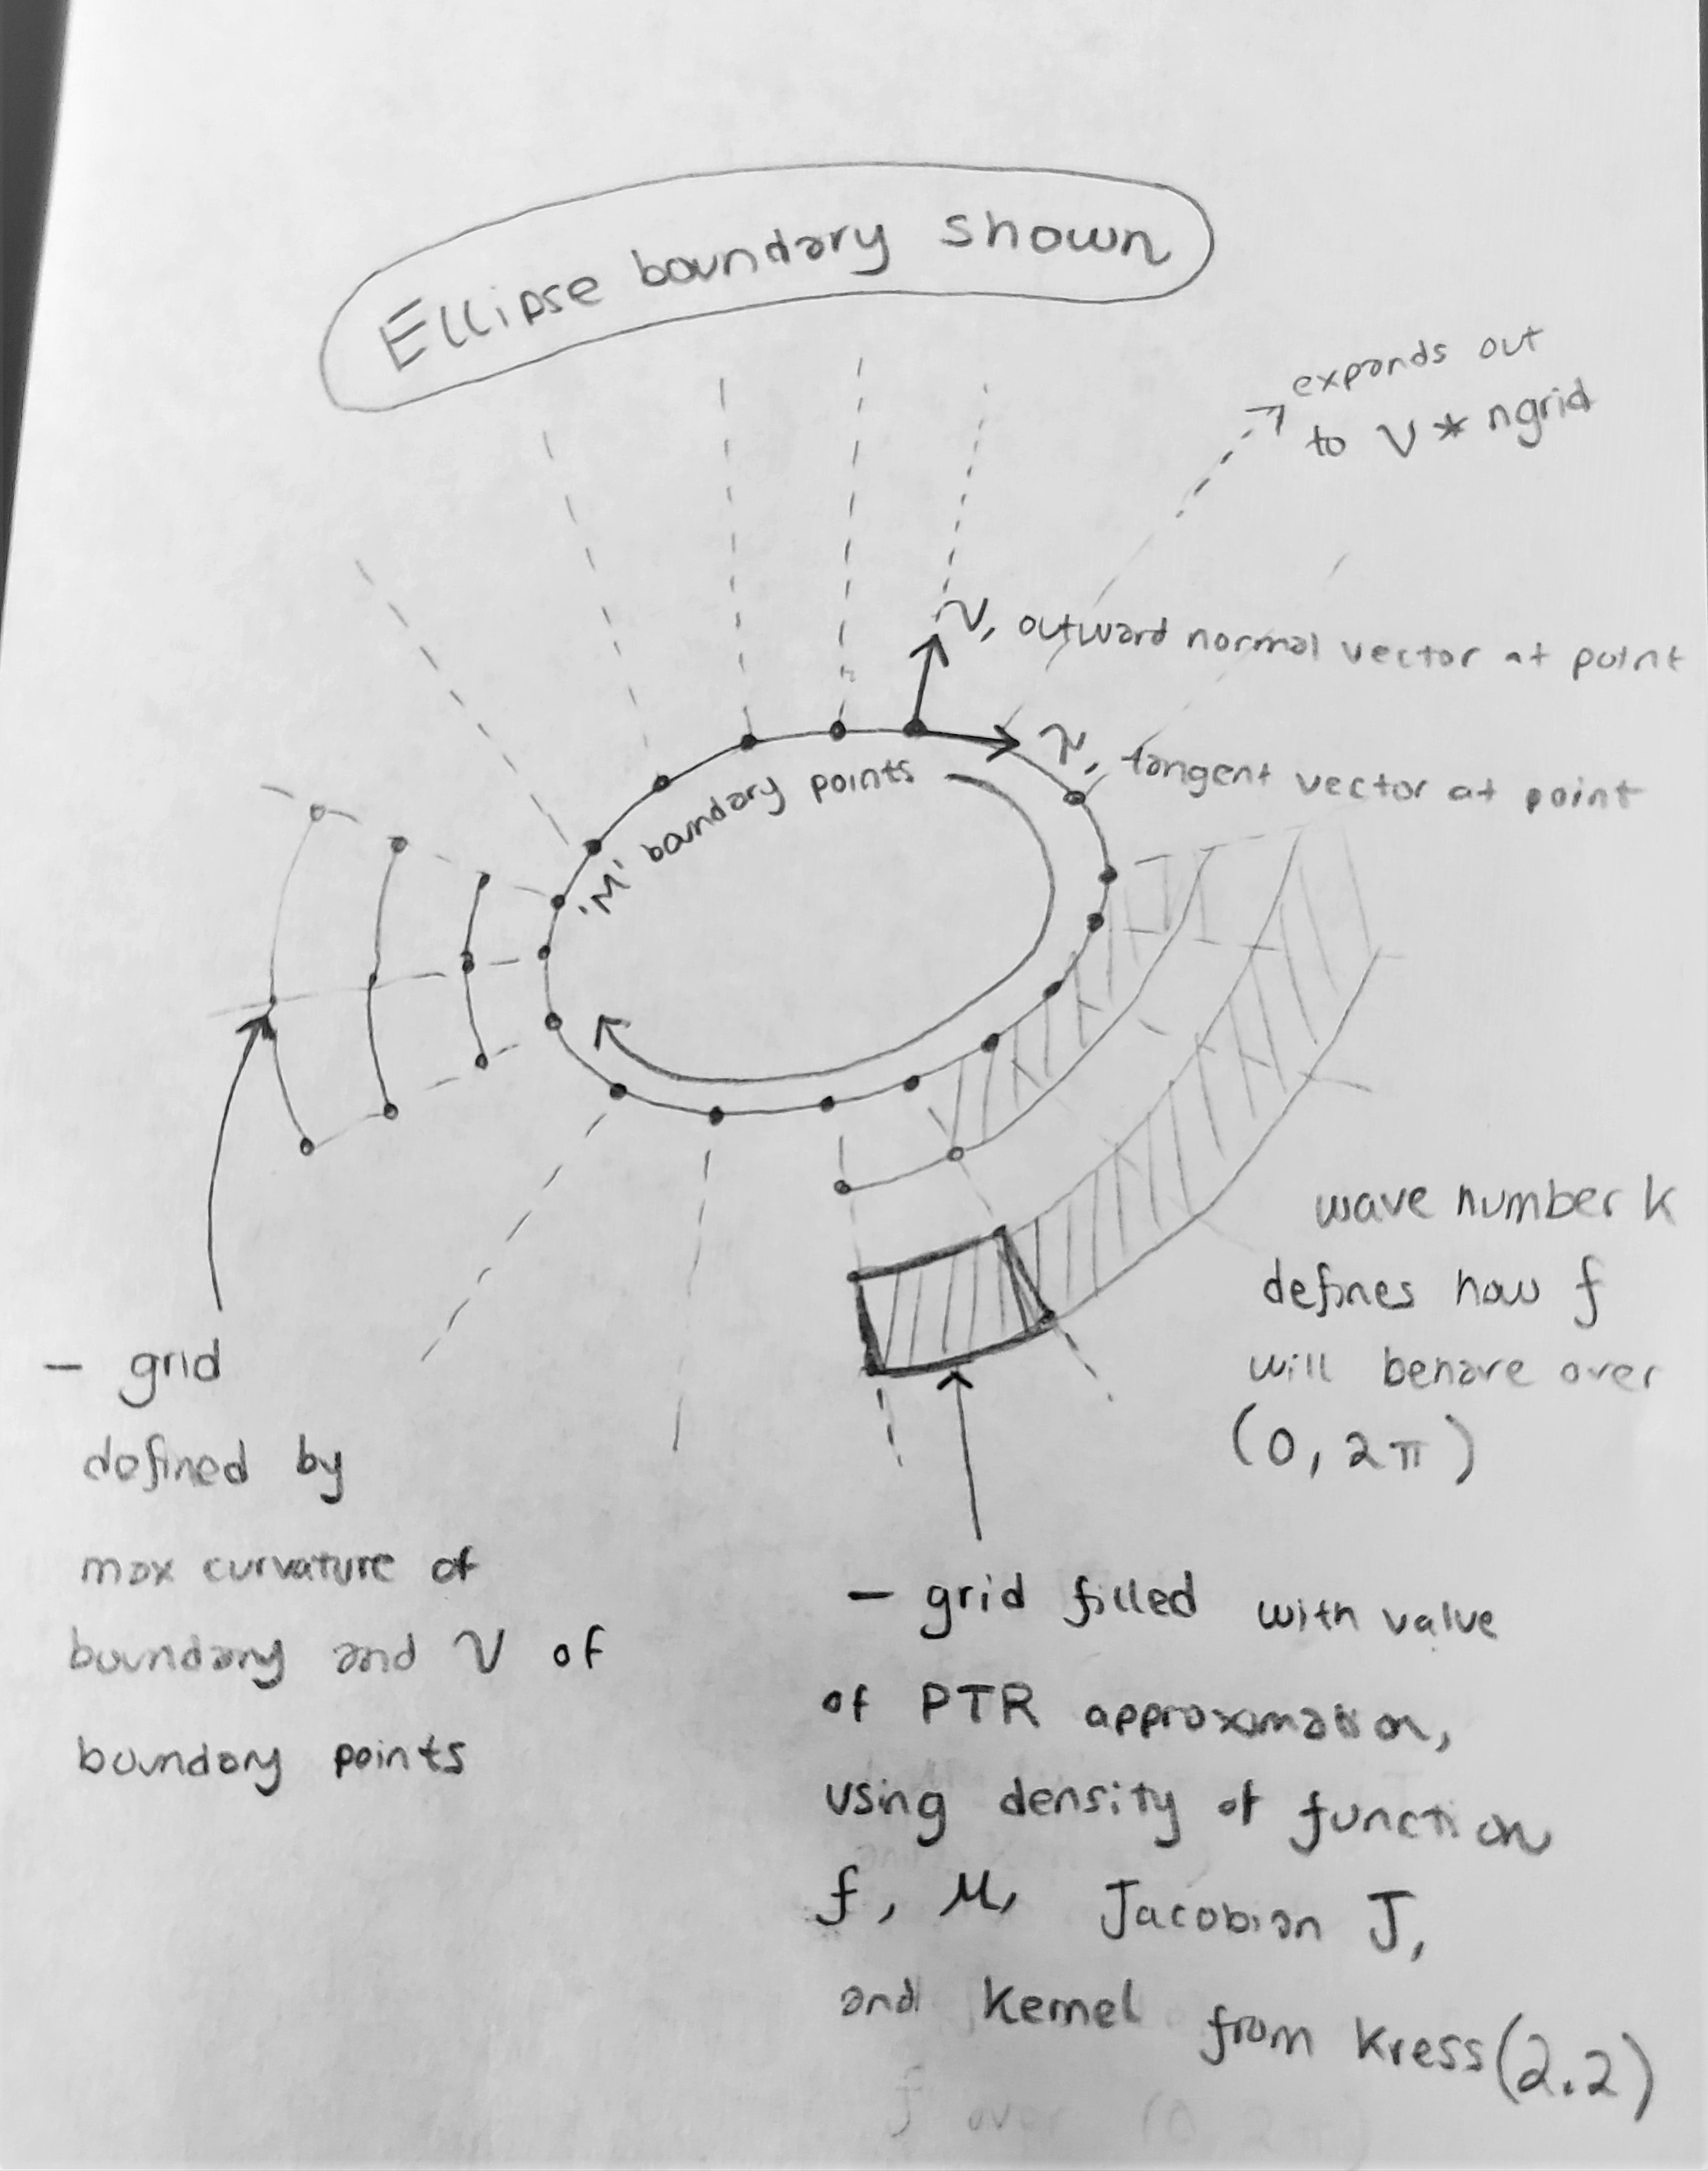 Ellipse boundary shown
expands out
to ν * ngrid
ν, outward normal vector at point
τ, tangent vector at point
'M' boundary points
wave number k
defines how f
will behave over
(0, 2π)
– grid
defined by
max curvature of
boundary and ν of
boundary points
– grid filled with value
of PTR approximation,
using density of function
f, μ, Jacobian J,
and Kernel from Kress (2.2)
f over (0, 2π)